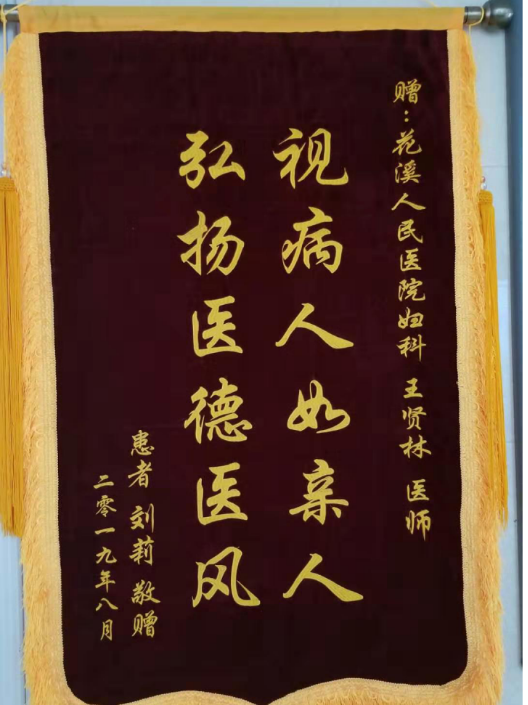 赠：花溪人民医院妇科 王贤林 医师
视病人如亲人
弘扬医德医风
患者 刘莉 敬赠
二零一九年八月